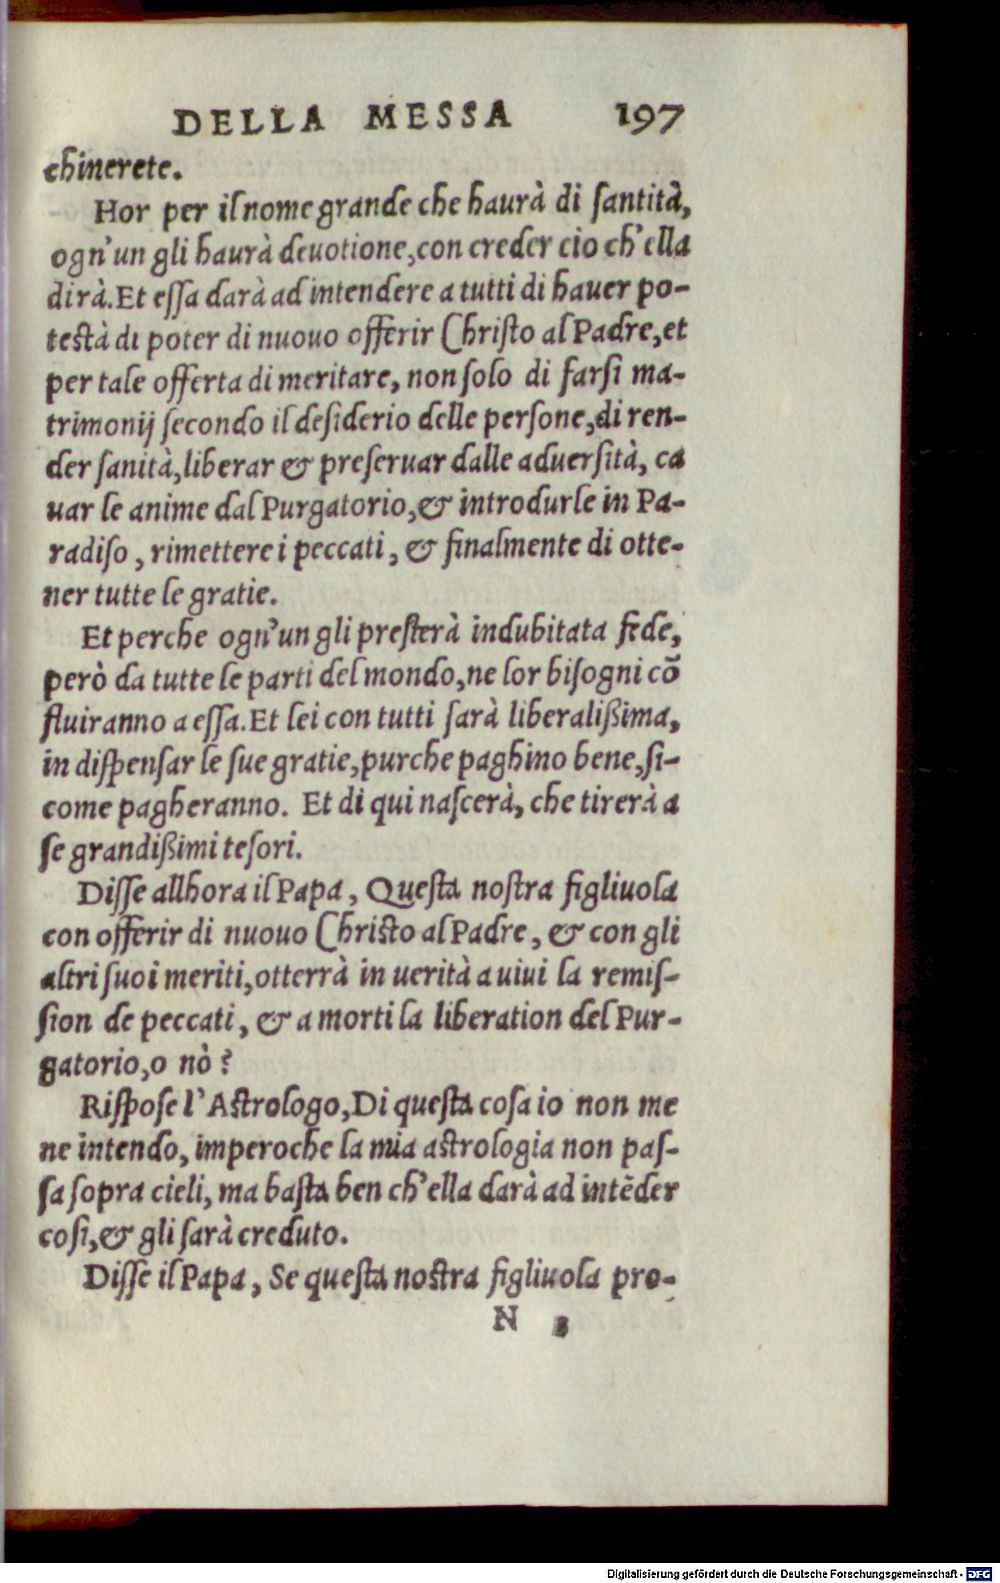 DELLA MESSA 197
chinerete.
Hor per il nome grande che haurà di ſantità,
ogn'un gli haurà deuotione, con creder cio ch'ella
dirà. Et eſſa darà ad intendere a tutti di hauer po-
teſtà di poter di nuouo offerir Chriſto al Padre, et
per tale offerta di meritare, non ſolo di farſi ma-
trimonij ſecondo il deſiderio delle perſone, di ren-
der ſanità, liberar & preſeruar dalle aduerſità, ca
uar le anime dal Purgatorio, & introdurle in Pa-
radiſo, rimettere i peccati, & finalmente di otte-
ner tutte le gratie.
Et perche ogn'un gli preſterà indubitata fede,
però da tutte le parti del mondo, ne lor biſogni cõ
fluiranno a eſſa. Et lei con tutti ſarà liberalißima,
in diſpenſar le ſue gratie, purche paghino bene, ſi-
come pagheranno. Et di qui naſcerà, che tirerà a
ſe grandißimi teſori.
Diſſe allhora il Papa, Queſta noſtra figliuola
con offerir di nuouo Chriſto al Padre, & con gli
altri ſuoi meriti, otterrà in uerità a uiui la remiſ-
ſion de peccati, & a morti la liberation del Pur-
gatorio, o nò?
Riſpoſe l'Aſtrologo, Di queſta coſa io non me
ne intendo, imperoche la mia aſtrologia non paſ-
ſa ſopra cieli, ma baſta ben ch'ella darà ad intẽder
coſi, & gli ſarà creduto.
Diſſe il Papa, Se queſta noſtra figliuola pro-
N 3
Digitalisierung gefördert durch die Deutsche Forschungsgemeinschaft - DFG